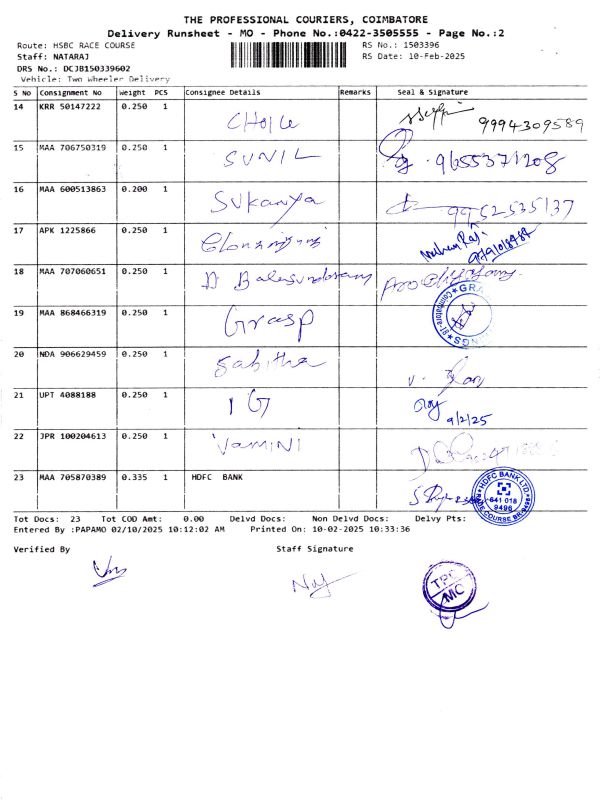 THE PROFESSIONAL COURIERS, COIMBATORE
Delivery Runsheet - MO - Phone No.:0422-3505555 - Page No.:2
Route: HSBC RACE COURSE RS No.: 1503396
Staff: NATARAJ RS Date: 10-Feb-2025
DRS No.: DCJB150339602
Vehicle: Two Wheeler Delivery
S No Consignment No Weight PCS Consignee Details Remarks Seal & Signature
14 KRR 50147222 0.250 1 CHOICE 9994309589
15 MAA 706750319 0.250 1 SUNIL 9655371208
16 MAA 600513863 0.200 1 Sukanya 9952535137
17 APK 1225866 0.250 1
18 MAA 707060651 0.250 1 D Balasundaram
19 MAA 868466319 0.250 1 Grasp
20 NDA 906629459 0.250 1 Sabitha
21 UPT 4088188 0.250 1 IG 9/2/25
22 JPR 100204613 0.250 1 YAMINI
23 MAA 705870389 0.335 1 HDFC BANK HDFC BANK LTD 641 018 9496
Tot Docs: 23 Tot COD Amt: 0.00 Delvd Docs: Non Delvd Docs: Delvy Pts:
Entered By :PAPAMO 02/10/2025 10:12:02 AM Printed On: 10-02-2025 10:33:36
Verified By Staff Signature
TPC
MO